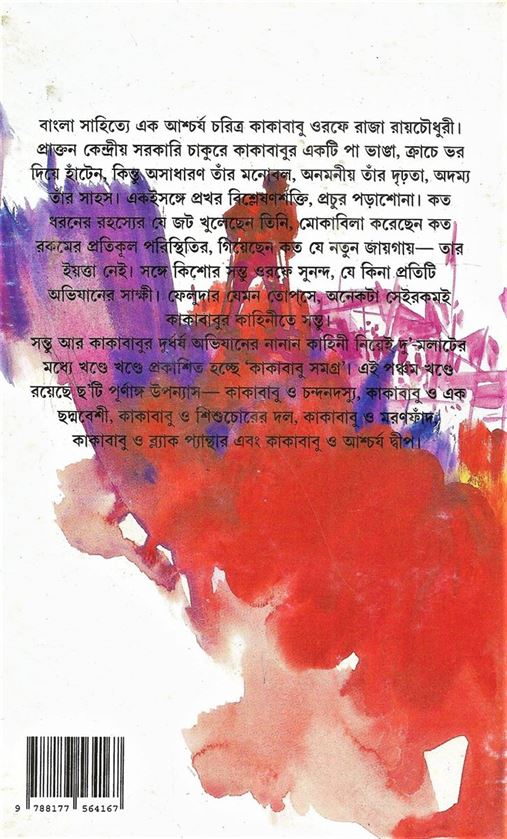 বাংলা সাহিত্যে এক আশ্চর্য চরিত্র কাকাবাবু ওরফে রাজা রায়চৌধুরী।
প্রাক্তন কেন্দ্রীয় সরকারি চাকুরে কাকাবাবুর একটি পা ভাঙা, ক্রাচে ভর
দিয়ে হাঁটেন, কিন্তু অসাধারণ তাঁর মনোবল, অনমনীয় তাঁর দৃঢ়তা, অদম্য
তাঁর সাহস। একইসঙ্গে প্রখর বিশ্লেষণশক্তি, প্রচুর পড়াশোনা। কত
ধরনের রহস্যের যে জট খুলেছেন তিনি, মোকাবিলা করেছেন কত
রকমের প্রতিকূল পরিস্থিতির, গিয়েছেন কত যে নতুন জায়গায়— তার
ইয়ত্তা নেই। সঙ্গে কিশোর সন্তু ওরফে সুনন্দ, যে কিনা প্রতিটি
অভিযানের সাক্ষী। ফেলুদার যেমন তোপসে, অনেকটা সেইরকমই
কাকাবাবুর কাহিনীতে সন্তু।
সন্তু আর কাকাবাবুর দুর্ধর্ষ অভিযানের নানান কাহিনী নিয়েই দু'-মলাটের
মধ্যে খণ্ডে খণ্ডে প্রকাশিত হচ্ছে ‘কাকাবাবু সমগ্র’। এই পঞ্চম খণ্ডে
রয়েছে ছ'টি পূর্ণাঙ্গ উপন্যাস— কাকাবাবু ও চন্দনদস্যু, কাকাবাবু ও এক
ছদ্মবেশী, কাকাবাবু ও শিশুচোরের দল, কাকাবাবু ও মরণফাঁদ,
কাকাবাবু ও ব্ল্যাক প্যান্থার এবং কাকাবাবু ও আশ্চর্য দ্বীপ।
9 788177 564167